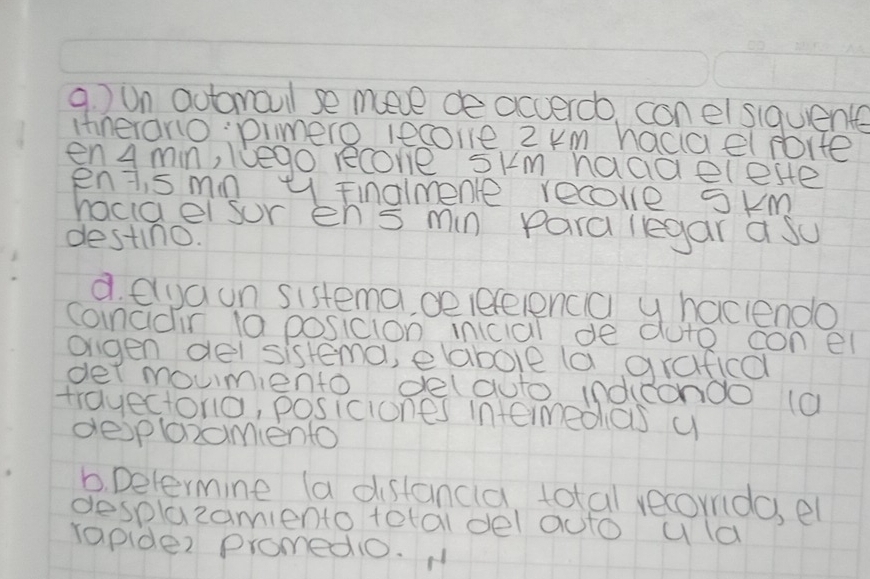 9.) Un automovil se mueve de acuerdo con el siguiente
itinerario: primero recorre 2 km hacia el norte
en 4 min, luego recorre 5 km hacia el este
en 7,5 min y finalmente recorre 5 km
hacia el sur en 5 min para llegar a su
destino.
a. elija un sistema de referencia y haciendo
coincidir la posición inicial de auto con el
origen del sistema, elabore la grafica
del movimiento del auto indicando la
trayectoria, posiciones intermedias y
desplazamiento
b. Determine la distancia total recorrida, el
desplazamiento total del auto y la
rapidez promedio.